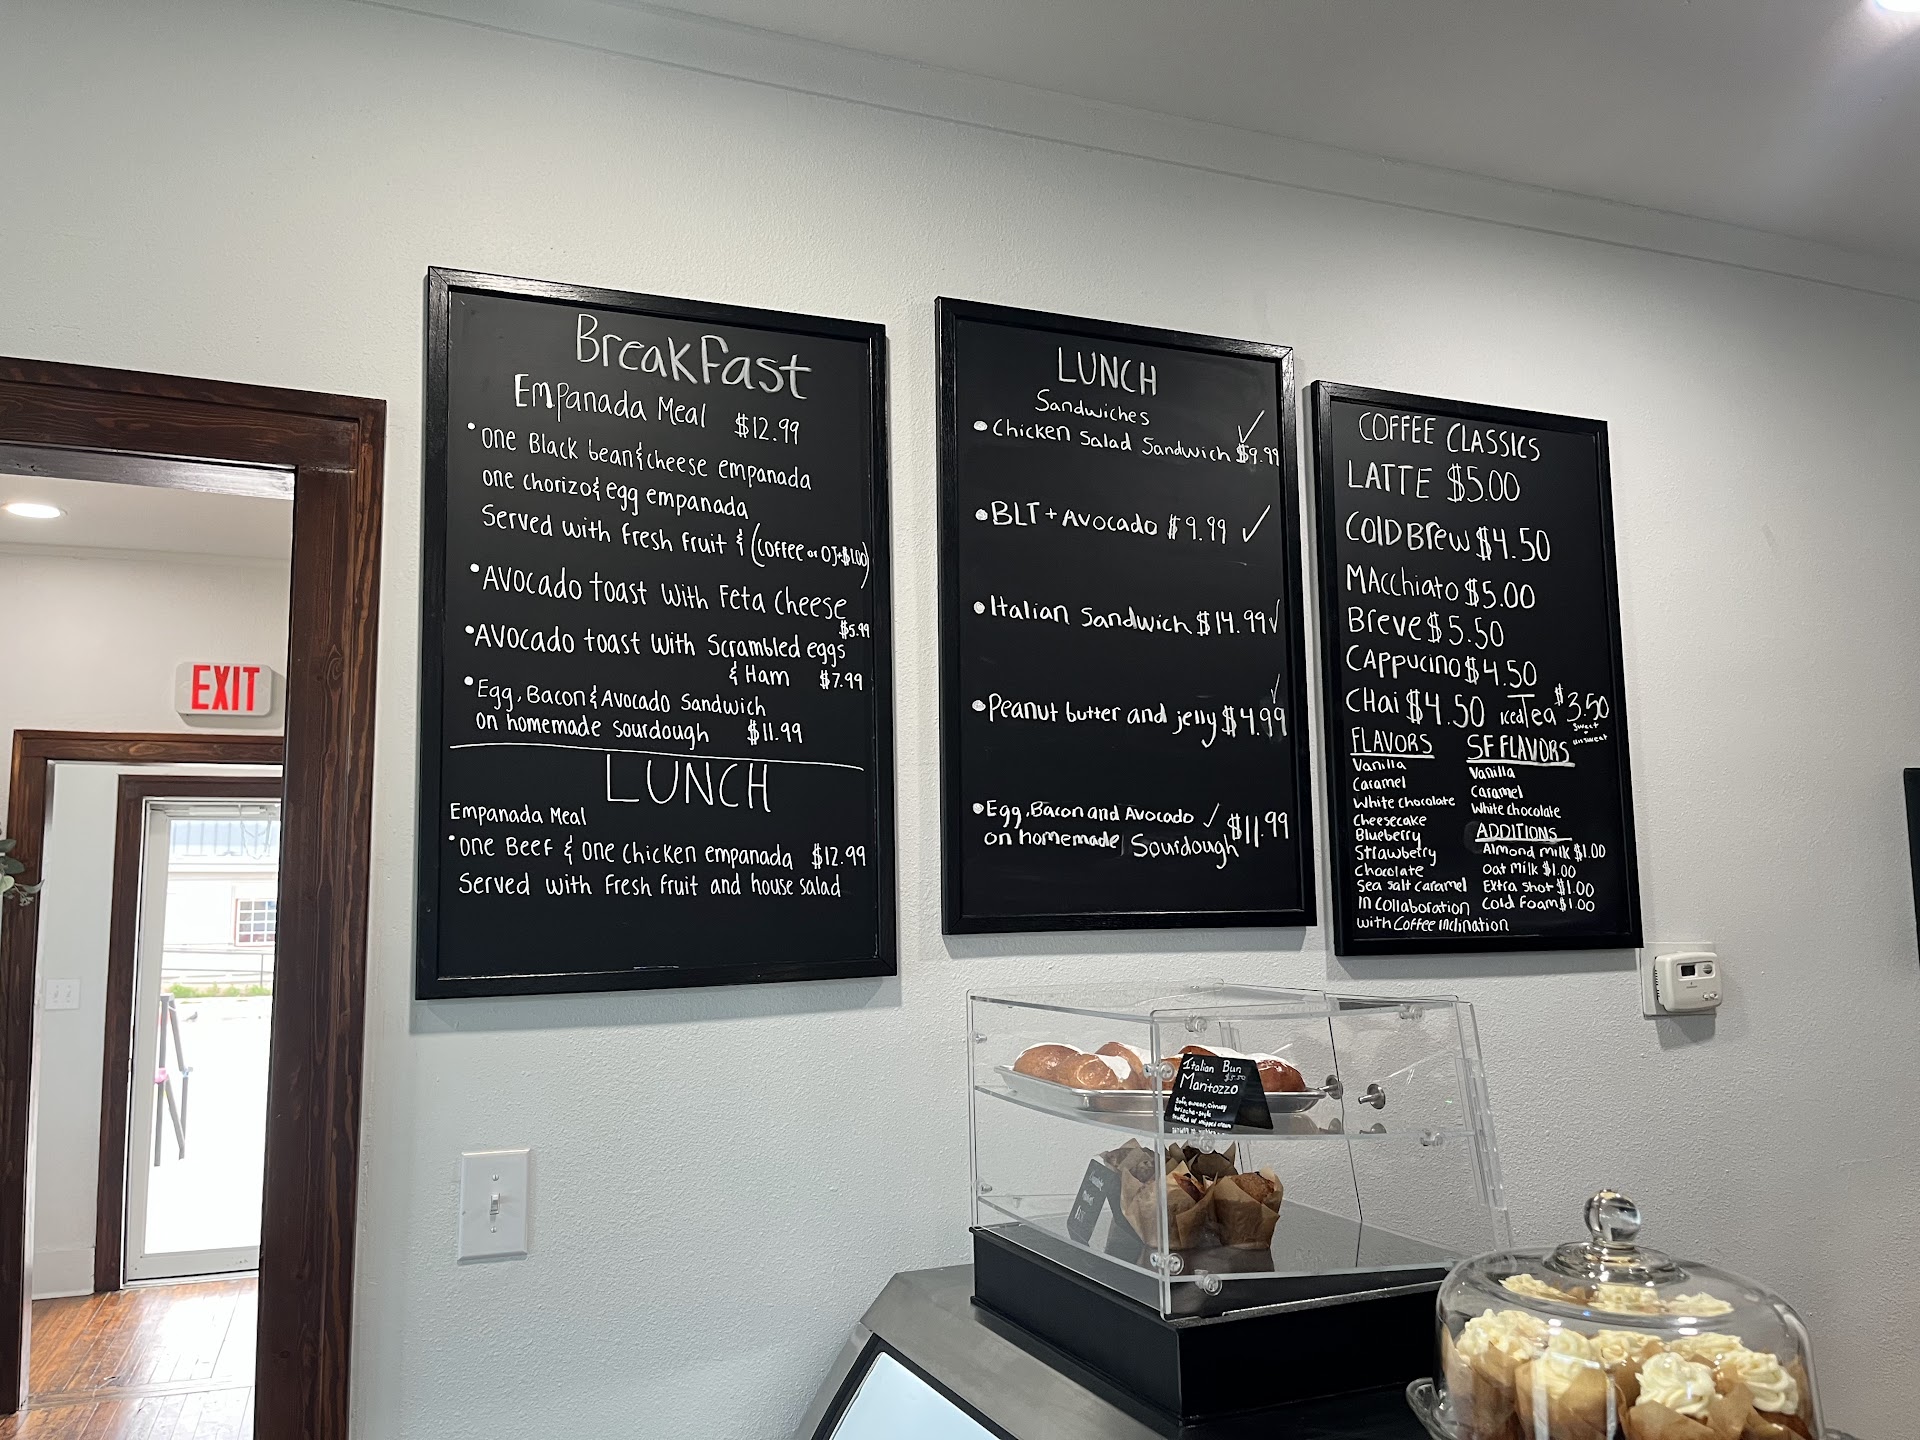 Breakfast
Empanada Meal $12.99
• one Black bean & cheese empanada
one chorizo & egg empanada
Served with fresh fruit & (coffee or OJ+$1.00)
• Avocado toast with Feta Cheese
$5.99
• Avocado toast with Scrambled eggs
& Ham $7.99
• Egg, Bacon & Avocado Sandwich
on homemade sourdough $11.99
LUNCH
Empanada Meal
• one Beef & one chicken empanada $12.99
Served with fresh fruit and house salad
LUNCH
Sandwiches
• Chicken Salad Sandwich $9.99 ✓
• BLT + Avocado $9.99 ✓
• Italian Sandwich $14.99 ✓
• Peanut butter and jelly $4.99 ✓
• Egg, Bacon and Avocado ✓ $11.99
on homemade Sourdough
COFFEE CLASSICS
LATTE $5.00
COLD BREW $4.50
MAcchiato $5.00
Breve $5.50
CAppucino $4.50
CHai $4.50
iced Tea $3.50
sweet
unsweet
FLAVORS
Vanilla
Caramel
White chocolate
Cheesecake
Blueberry
Strawberry
Chocolate
Sea salt caramel
SF FLAVORS
Vanilla
Caramel
White chocolate
ADDITIONS
Almond milk $1.00
Oat milk $1.00
Extra shot $1.00
Cold foam $1.00
In collaboration
with Coffee Inclination
EXIT
Italian Bun
$5.50
Maritozzo
brioche-style
stuffed w/ whipped cream